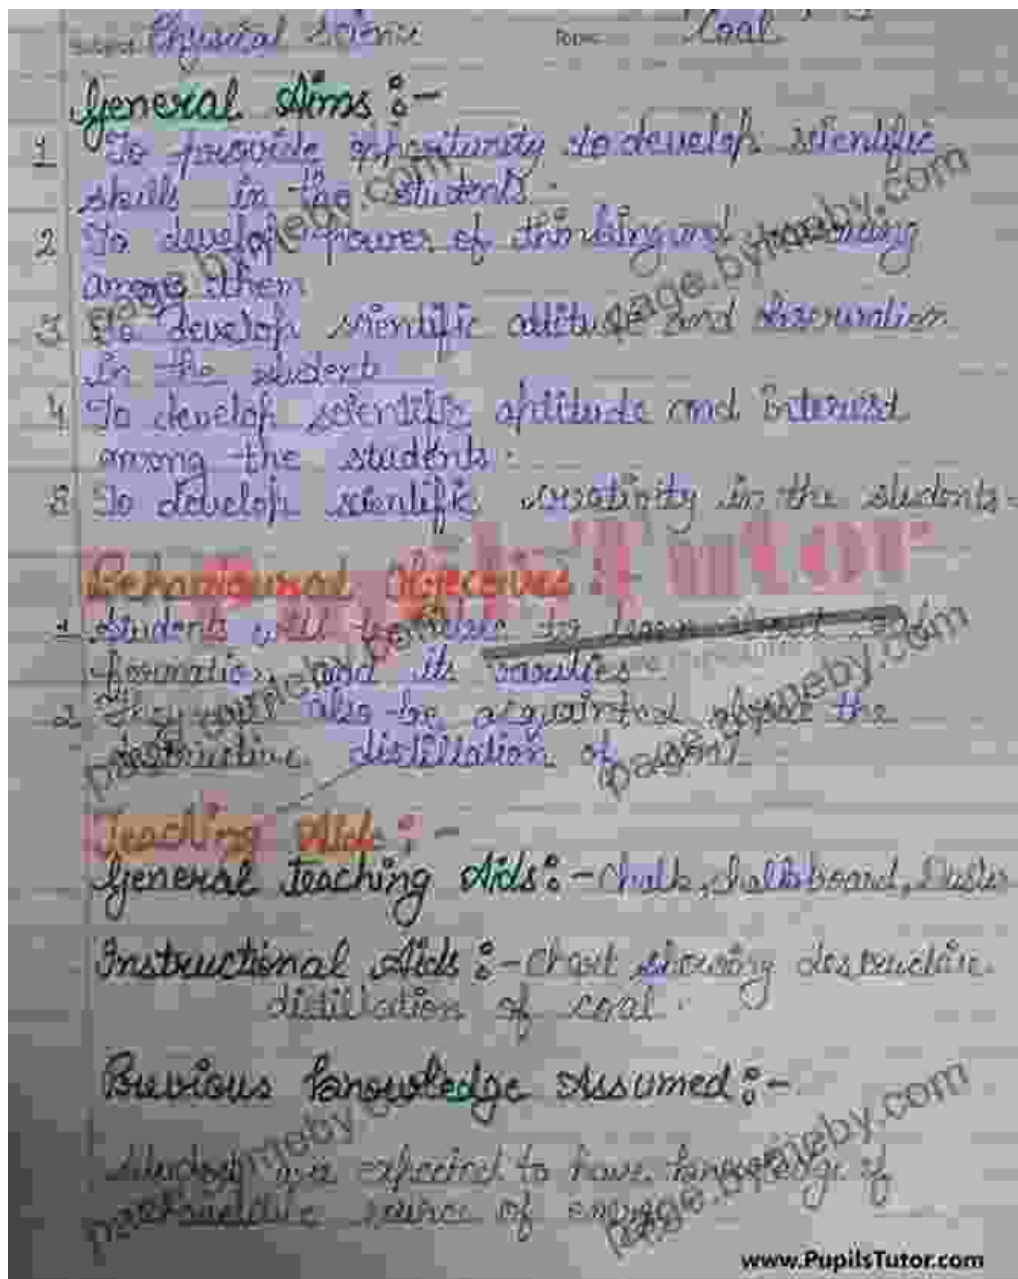 Subject: Physical Science Topic: Coal
General Aims :-
1 To provide opportunity to develop scientific
skills in the students.
2 To develop power of thinking and reasoning
among them
3 To develop scientific attitude and observation
in the students
4 To develop scientific aptitude and interest
among the students.
5 To develop scientific creativity in the students.
Behavioural Objectives :-
1 Students will be able to learn about coal
formation and its varities
2 They will also be acquainted about the
destructive distillation of
Teaching Aids :-
General Teaching Aids :- Chalk, chalkboard, Duster
Instructional Aids :- Chart showing destructive
distillation of coal.
Previous Knowledge Assumed :-
Students are expected to have knowledge of
source of energy
www.PupilsTutor.com